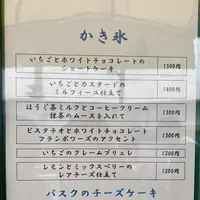 かき氷
いちごとホワイトチョコレートの
ショートケーキ
1500円
いちごとカスタードの
ミルフィーユ仕立て
1600円
ほうじ茶ミルクとコーヒークリーム
抹茶のムースを入れて
1300円
ピスタチオとホワイトチョコレート
フランボワーズのアクセント
1400円
いちごのクレームブリュレ
1200円
レモンとミックスベリーの
レアチーズ仕立て
1200円
バスクのチーズケーキ